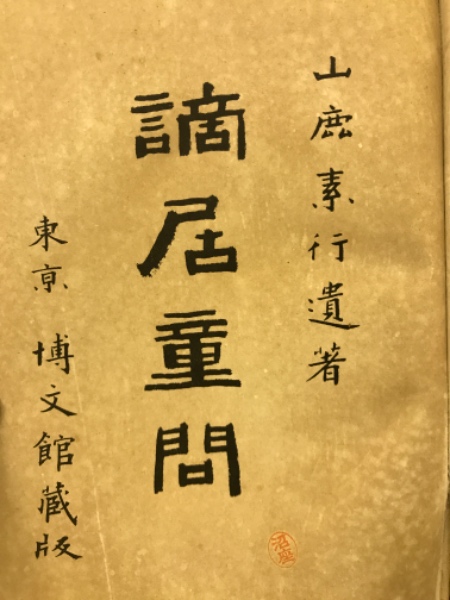 山鹿素行遺著
謫居童問
東京 博文館藏版